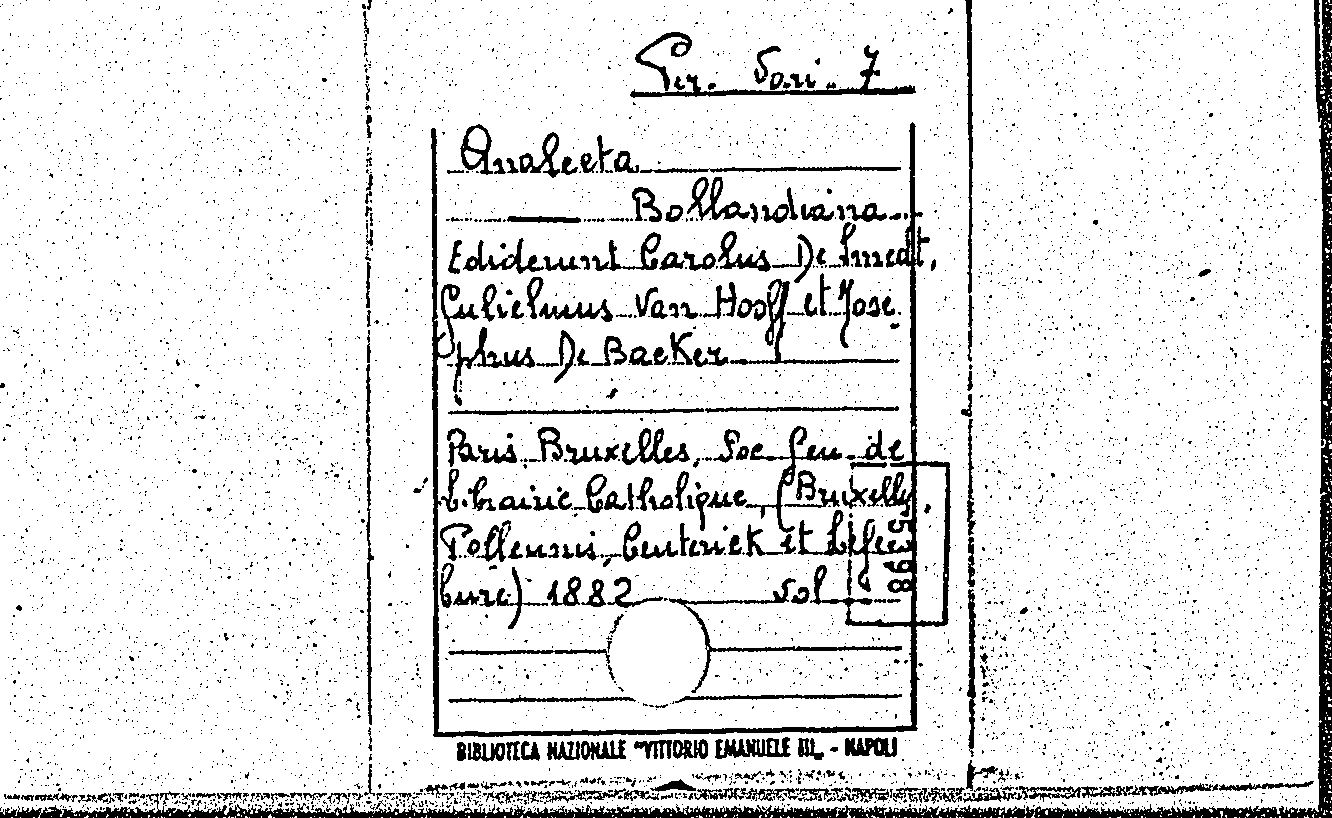 Per. Sari. 7
Analecta
Bollandiana
Ediderunt Carolus De Smedt,
Gulielmus Van Hooff et Jose
phus De Backer
Paris, Bruxelles, Soc. Gen. de
Librairie Catholique, (Bruxelles,
Polleunis, Ceuterick et Lefeu
bure) 1882 vol
BIBLIOTECA NAZIONALE "VITTORIO EMANUELE III„ - NAPOLI